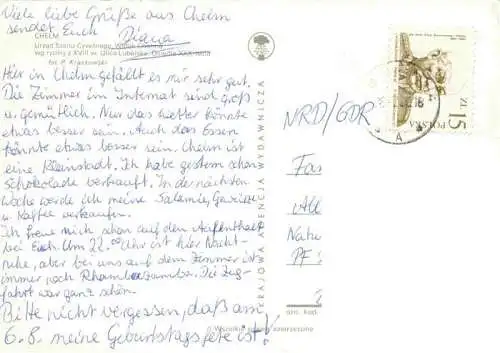 Viele liebe Grüße aus Chelm
sendet Euch Diana
CHEŁM
Urząd Stanu Cywilnego
wg ryciny z XVIII w. Ulica Lubelska. Osiedle XXX-lecia
fot. P. Krassowski
Hier in Chelm gefällt es mir sehr gut.
Die Zimmer im Internat sind groß
u. gemütlich. Nur das Wetter könnte
etwas besser sein. Auch das Essen
könnte etwas besser sein. Chelm ist
eine Kleinstadt. Ich habe gestern schon
Schokolade verkauft. In der nächsten
Woche werde ich meine Salamie, Gewürze
u. Kaffee verkaufen.
Ich freue mich schon auf den Aufenthalt
bei Euch. Um 22.00 Uhr ist hier Nacht-
ruhe, aber bei uns auf dem Zimmer ist
immer noch Rhambazamba. Die Zug-
fahrt war ganz schön.
Bitte nicht vergessen, daß am
6.8. meine Geburtstagsfete ist!
KRAJOWA AGENCJA WYDAWNICZA
ZŁ 15
POLSKA
NRD/GDR
Fas
Natu
PF
Wszelkie prawa zastrzeżone